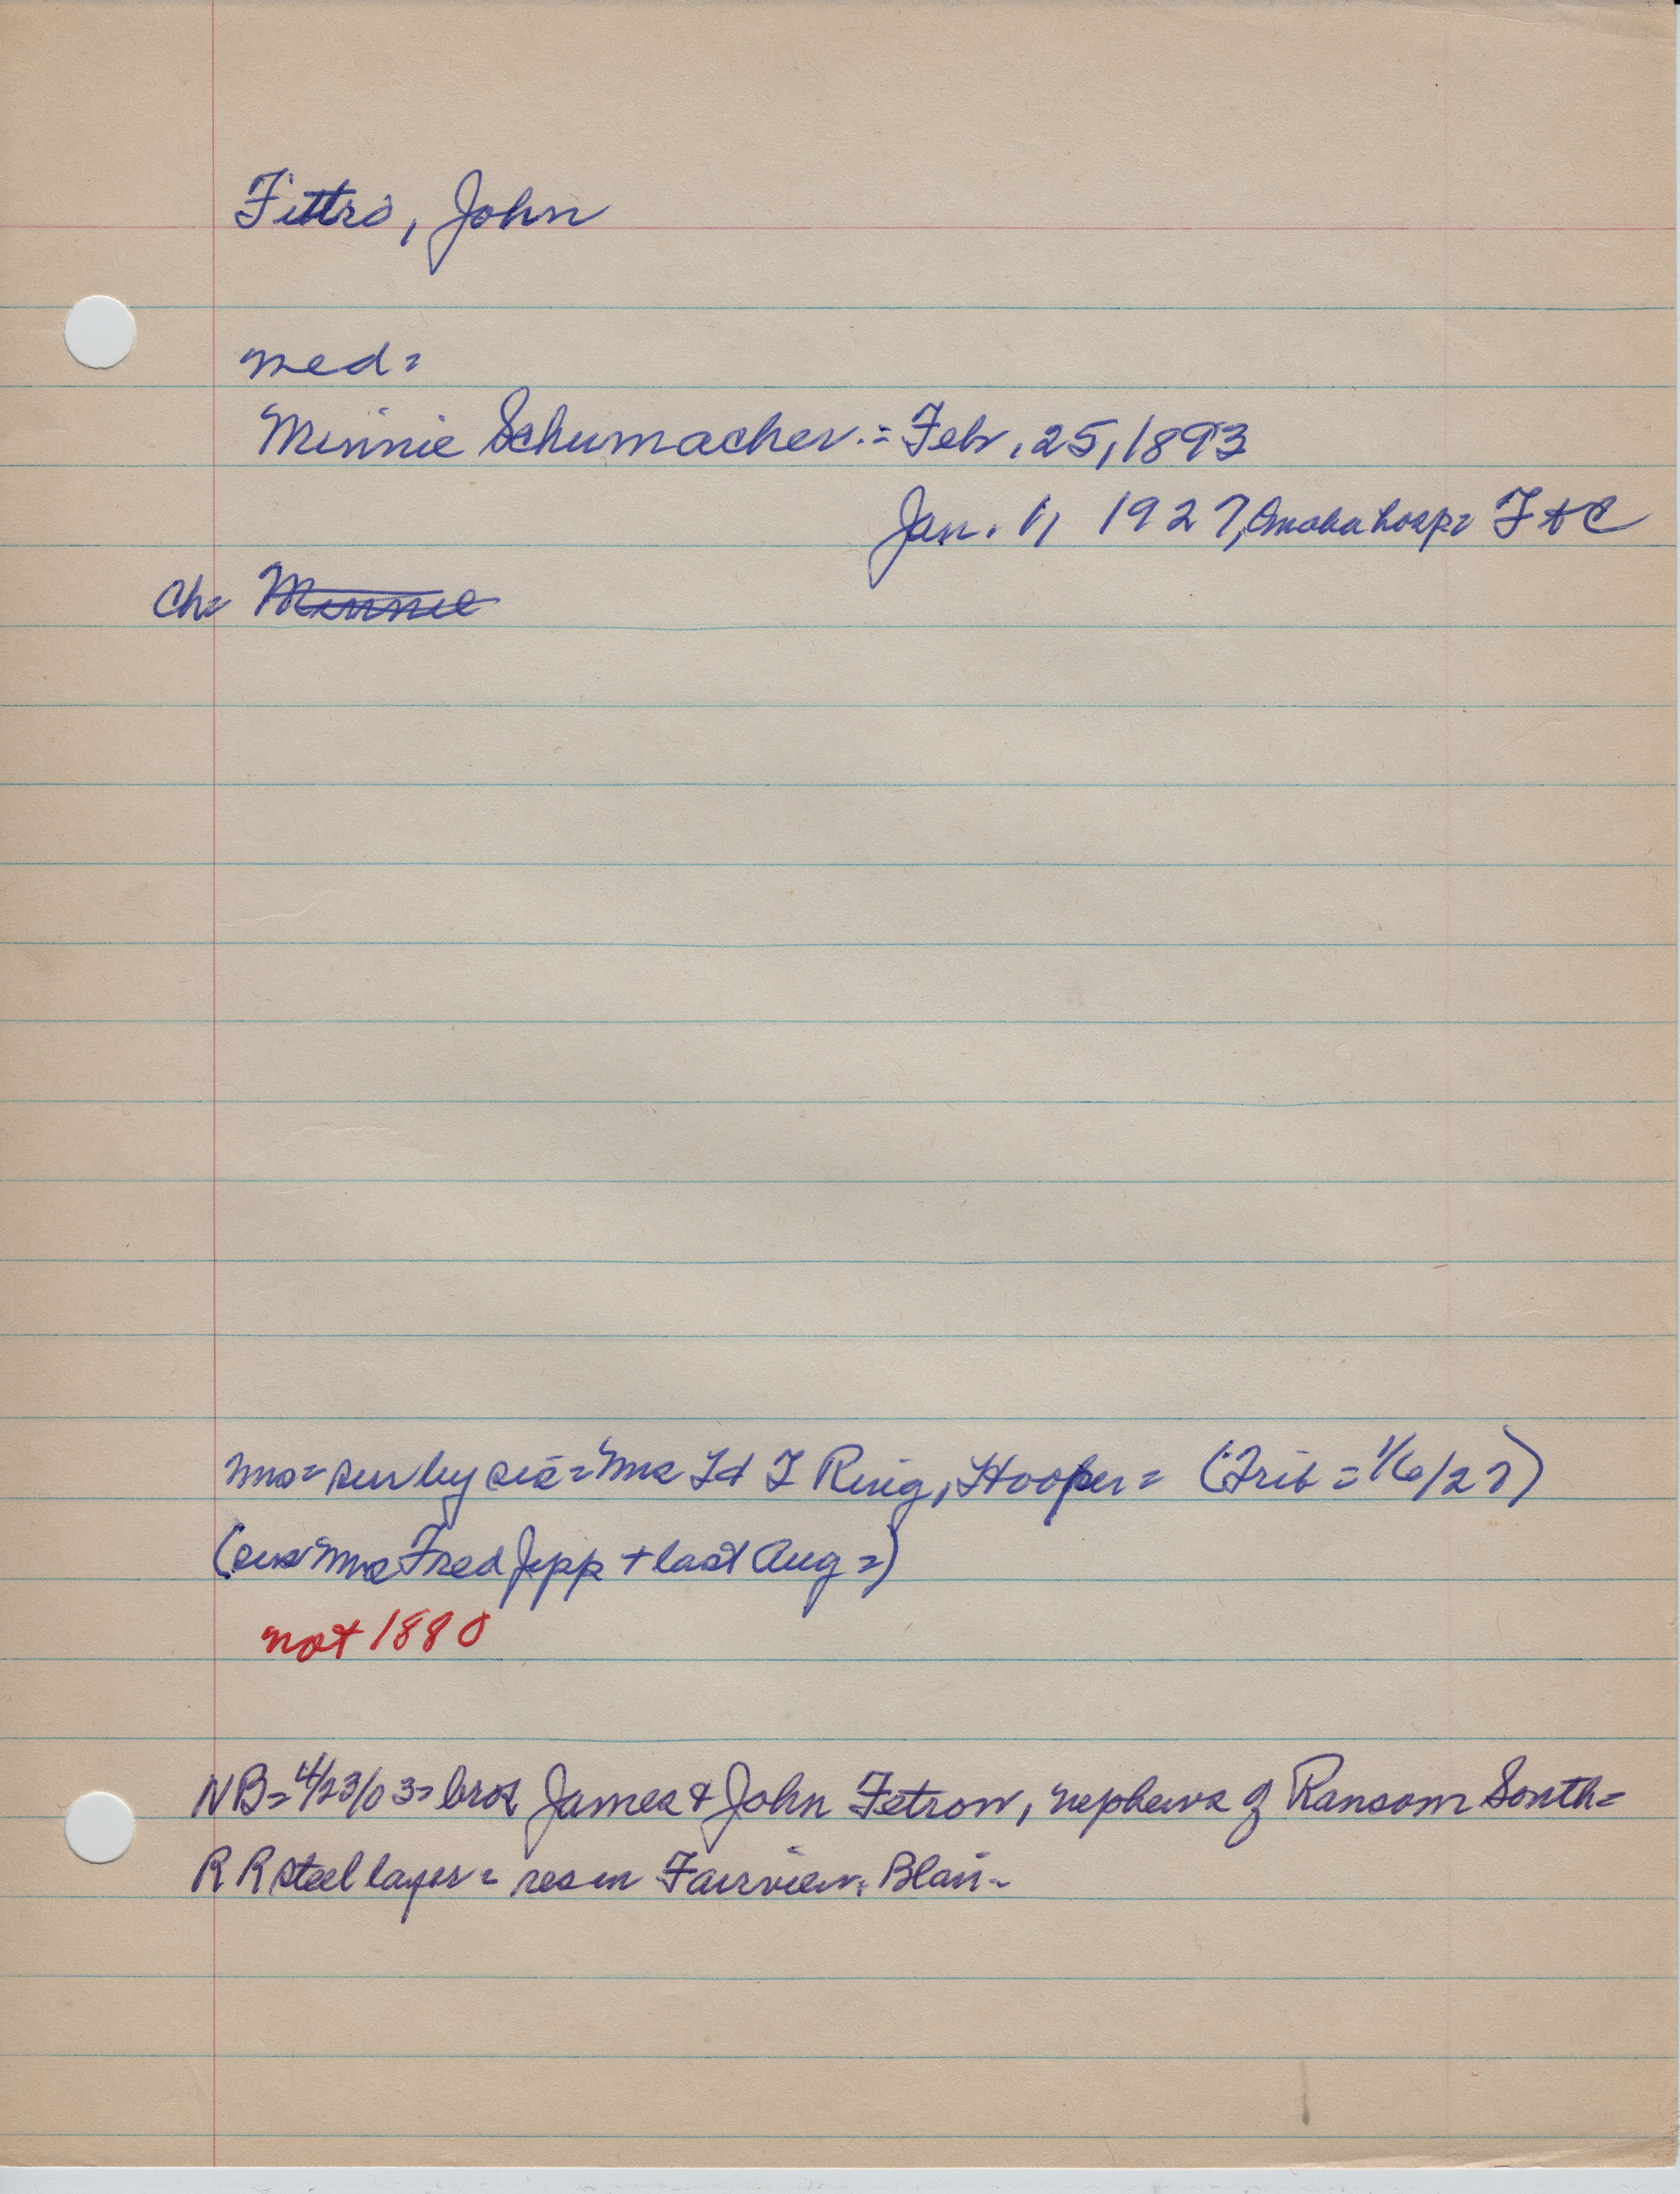 Fittro, John
med=
Minnie Schumacher = Feb. 25, 1893
Jan. 1, 1927, Omaha hosp= F A C
Ch= Minnie
Mrs= sur by sis= Mrs Ed F Ring, Hooper= (Trib= 1/6/27)
(sis Mrs Fred Jipp + last Aug=)
not 1880
NB= 4/23/03= bros James & John Fetrow, nephews of Ransom South=
R R steel layer= res in Fairview. Blair-